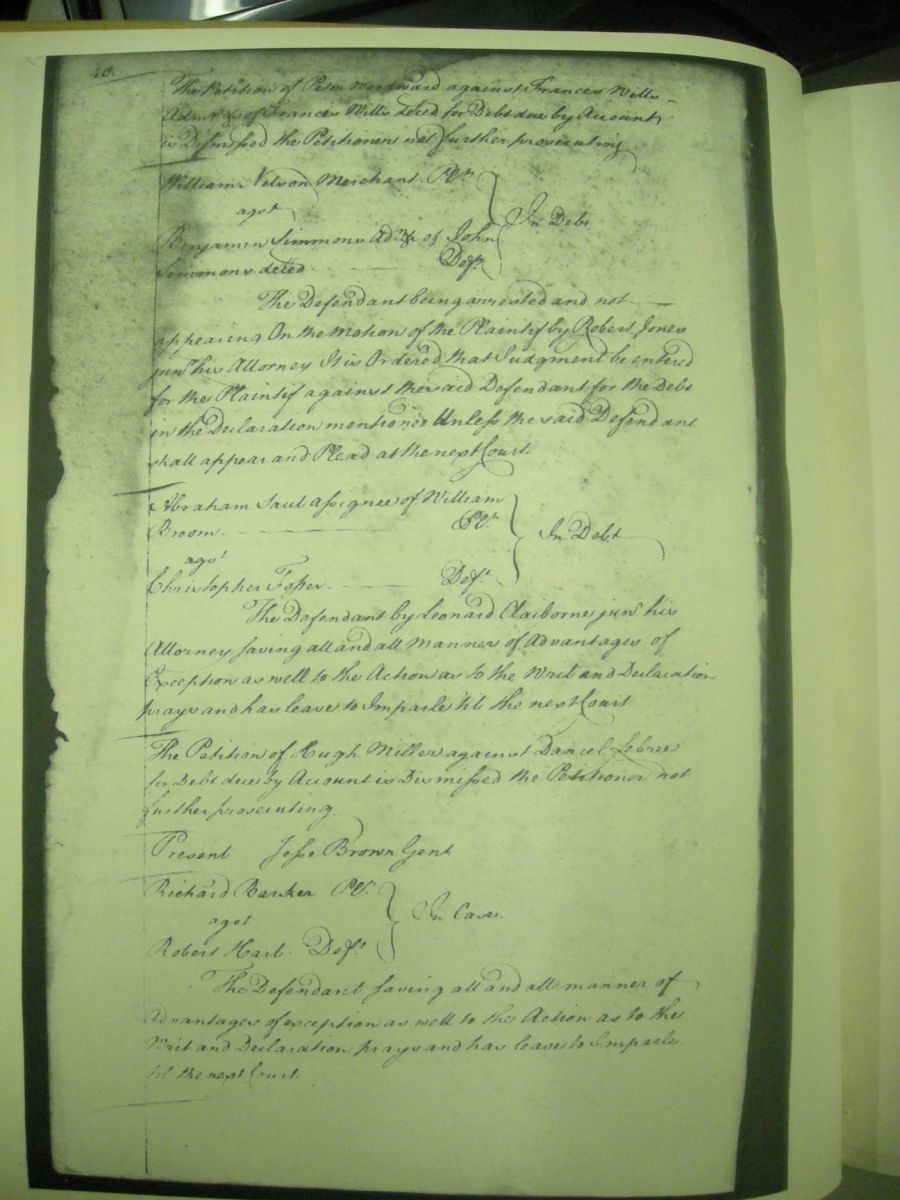 48.
The Petition of Peter Woodward against Frances Wills
Admx &c of Francis Wills deced for Debt due by Account
is Dismissed the Petitioner not further prosecuting
William Nelson Merchant Plt
agst
In Debt
Benjamin Simmons Adr &c of John
Simmons deced Deft
The Defendant being arrested and not
appearing On the Motion of the Plaintif by Robert Jones
junr his Attorney It is Ordered that Judgment be entered
for the Plaintif against the said Defendant for the Debt
in the Declaration mentioned Unless the said Defendant
shall appear and Plead at the next Court.
Abraham Saul assignee of William
Broom Plt
In Debt
agst
Christopher Foster Deft
The Defendant by Leonard Claiborne junr his
Attorney saving all and all Manner of Advantages of
Exception as well to the Action as to the Writ and Declaration
prays and has leave to Imparle til the next Court
The Petition of Hugh Miller against Daniel Lebree
for Debt due by Account is Dismissed the Petitioner not
further prosecuting
Present Jesse Brown Gent
Richard Barker Plt
agst
In Case.
Robert Hart. Deft
The Defendant saving all and all manner of
Advantages of exception as well to the Action as to the
Writ and Declaration prays and has leave to Imparle
til the next Court.